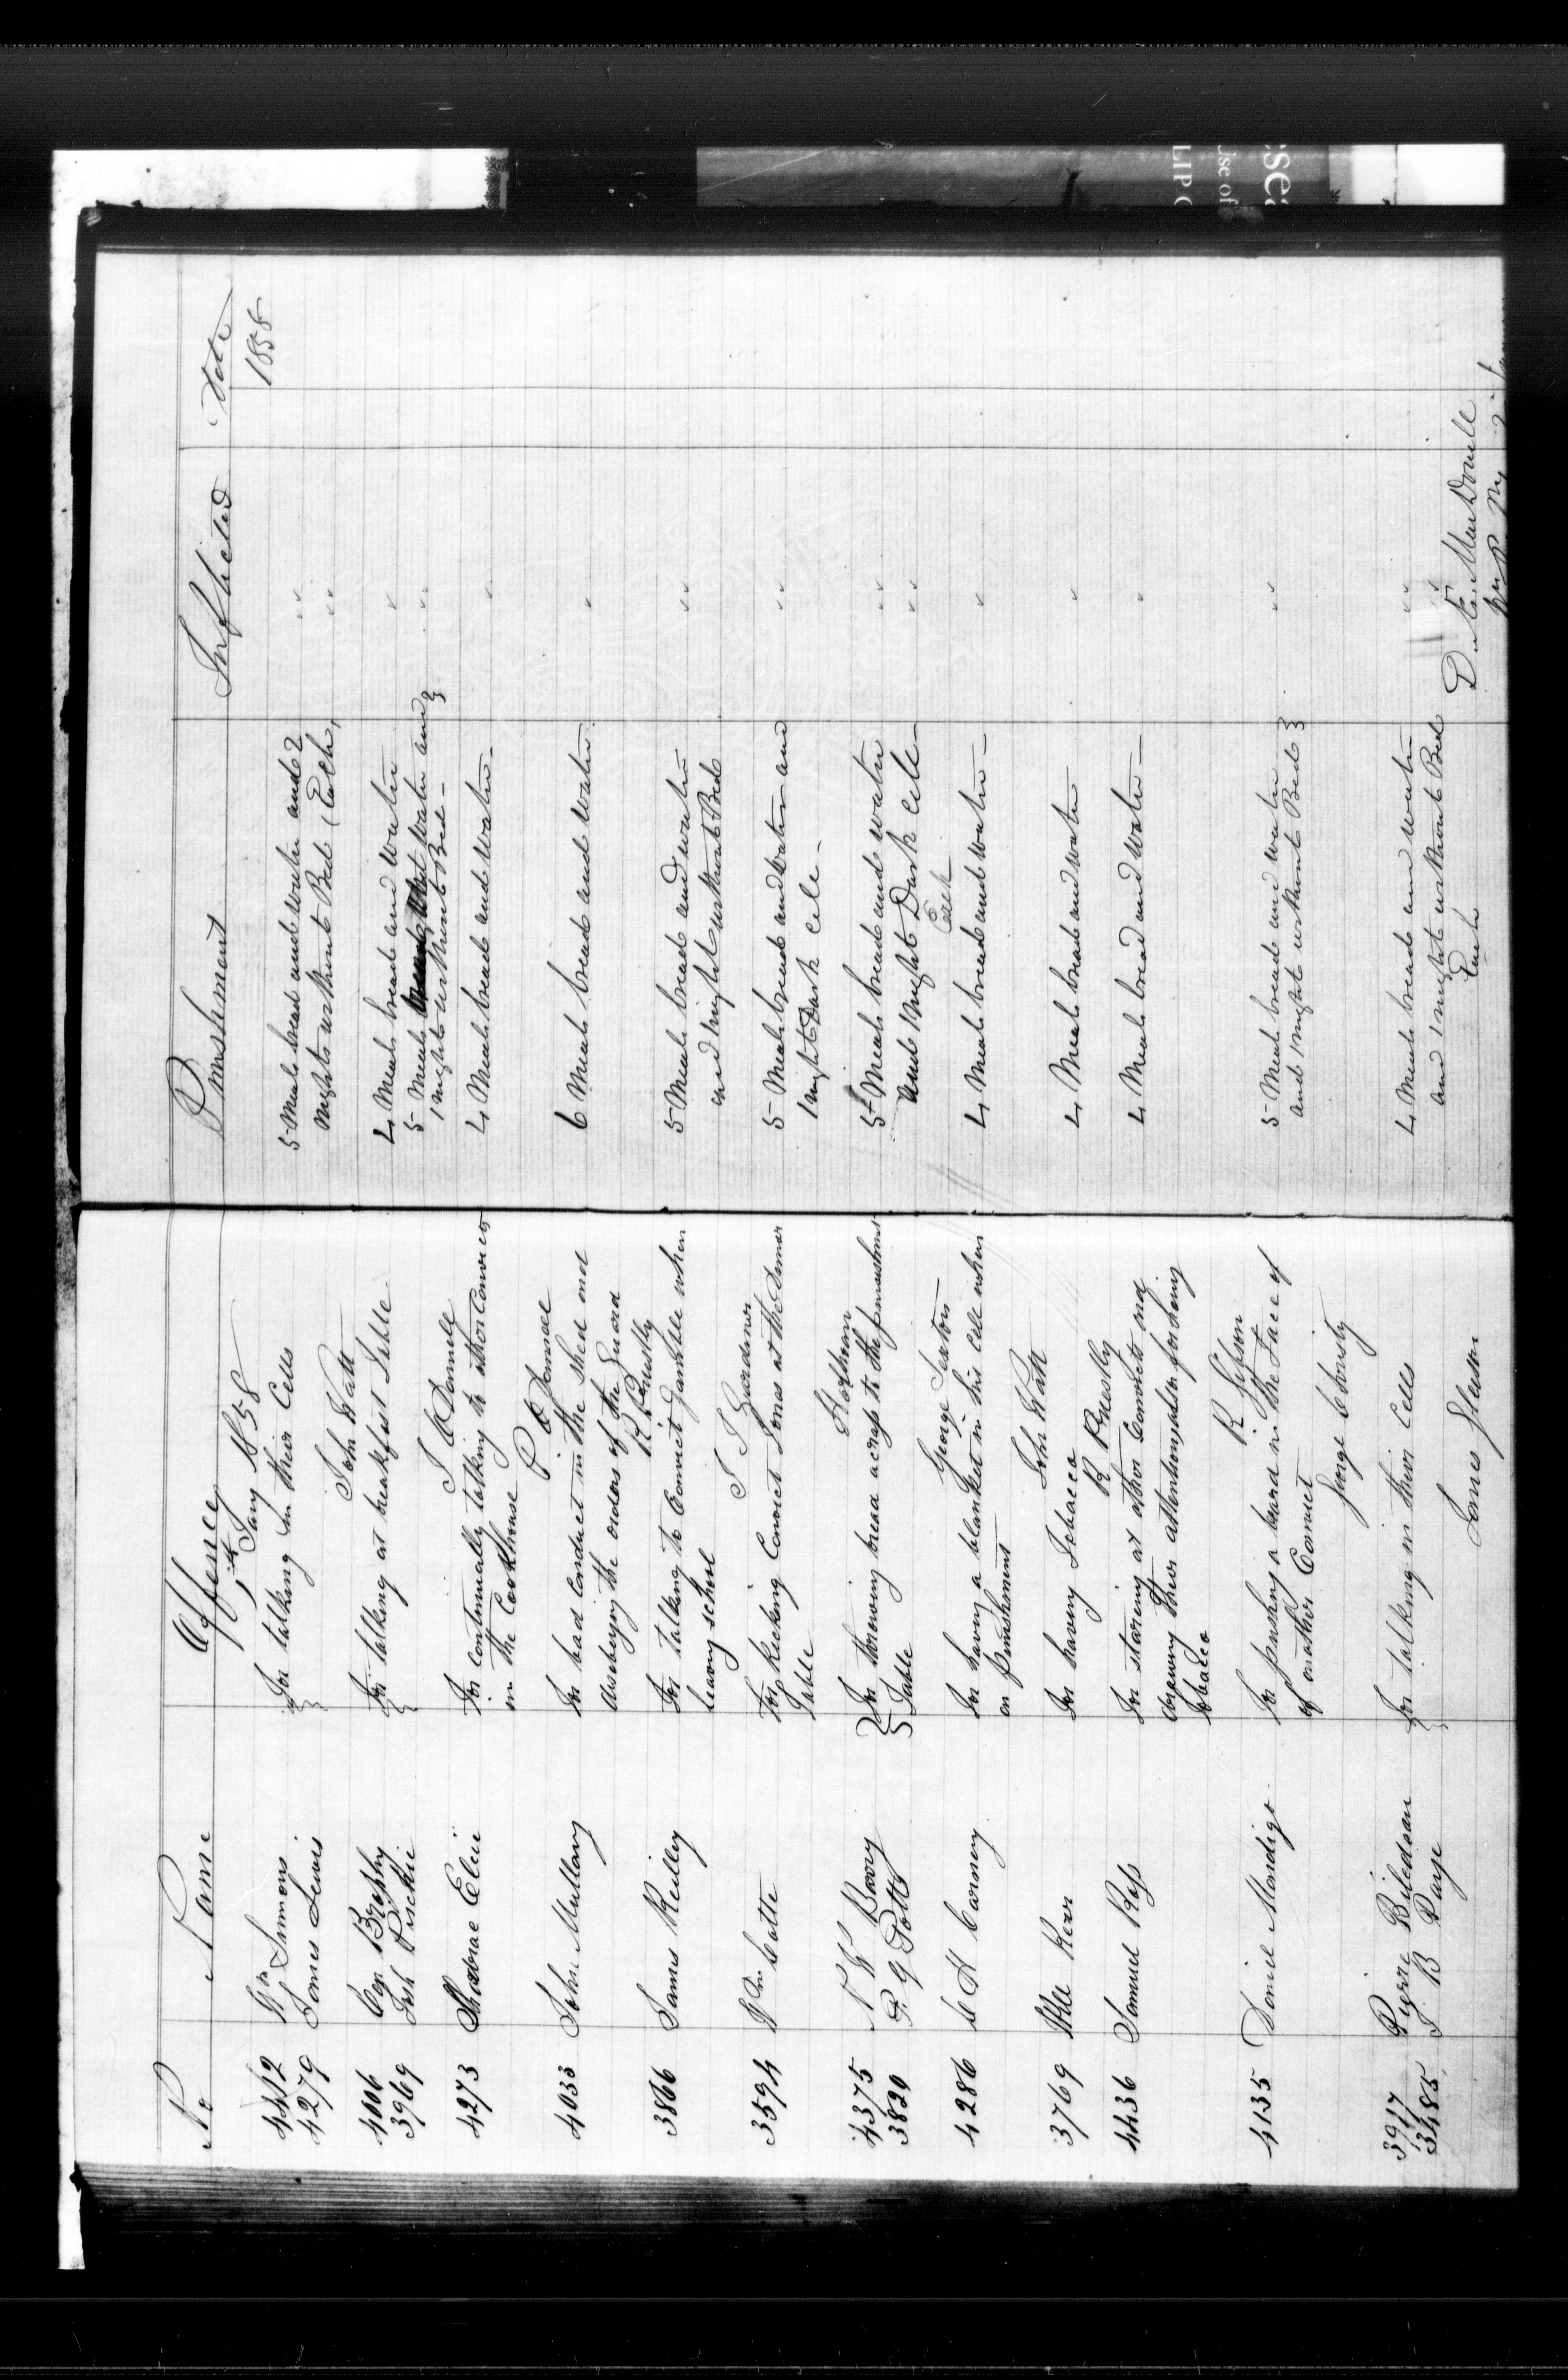 No Name Offence Punishment Inflicted Date
1st Jany 1858 1858
4412 Wm Simmons For talking in their Cells 5 Meals bread and water and 2 "
4279 James Lewis nights without Bed (Each) "
John Watt
4006 Brophy For talking at breakfast Table 4 Meals bread and water "
3969 5 Meals water and
1 night without Bed
J O'Donnell
4273 Elii For continually talking to other Convicts 4 Meals bread and water "
in the Cookhouse
P O'Donnell
4033 John Mullany For bad Conduct in the Shed and 6 Meals bread and water "
disobeying the orders of the Guard
R Priestly
3866 James Reilley For talking to Convict Gamble when 5 Meals bread and water "
leaving school and 1 night without Bed
J J Gardiner
3594 Wm Catte For kicking Convict Jones at the dinner 5 Meals bread and water and "
Table 1 night Dark cell
Hoffman
4375 N W Barry For throwing bread across to the punishment 5 Meals bread and water "
3820 P G Potts Table and 1 night Dark cell "
Each
George Sexton
4286 C H Carney For having a blanket in his cell when 4 Meals bread and water "
on punishment
John Watt
3769 Kerr For having Tobacco 4 Meals bread and water "
R Priestly
4436 Samuel Ross For staring at other Convicts and 4 Meals bread and water "
drawing their attention, also for having
tobacco
R Gibson
4135 Daniel Mandigo For pushing a board in the face of 5 Meals bread and water "
of another Convict and 1 night without Bed
George
3917 Pierre Biledeau For talking in their Cells 4 Meals bread and water "
3485 J B Page and 1 night without Bed "
Each
James Gleeson
D. Æ. MacDonell